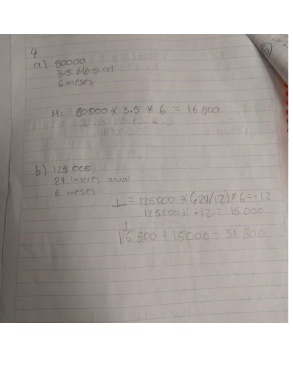 4
a) 80000
3.5 Mensual
6 meses
H: 80000 * 3.5 * 6 = 16 800
b) 125 000
24 interes anual
6 meses
I = 125000 * (.24/12) * 6 = .12
125000 * .12 = 15.000
16 800 + 15000 = 31.800